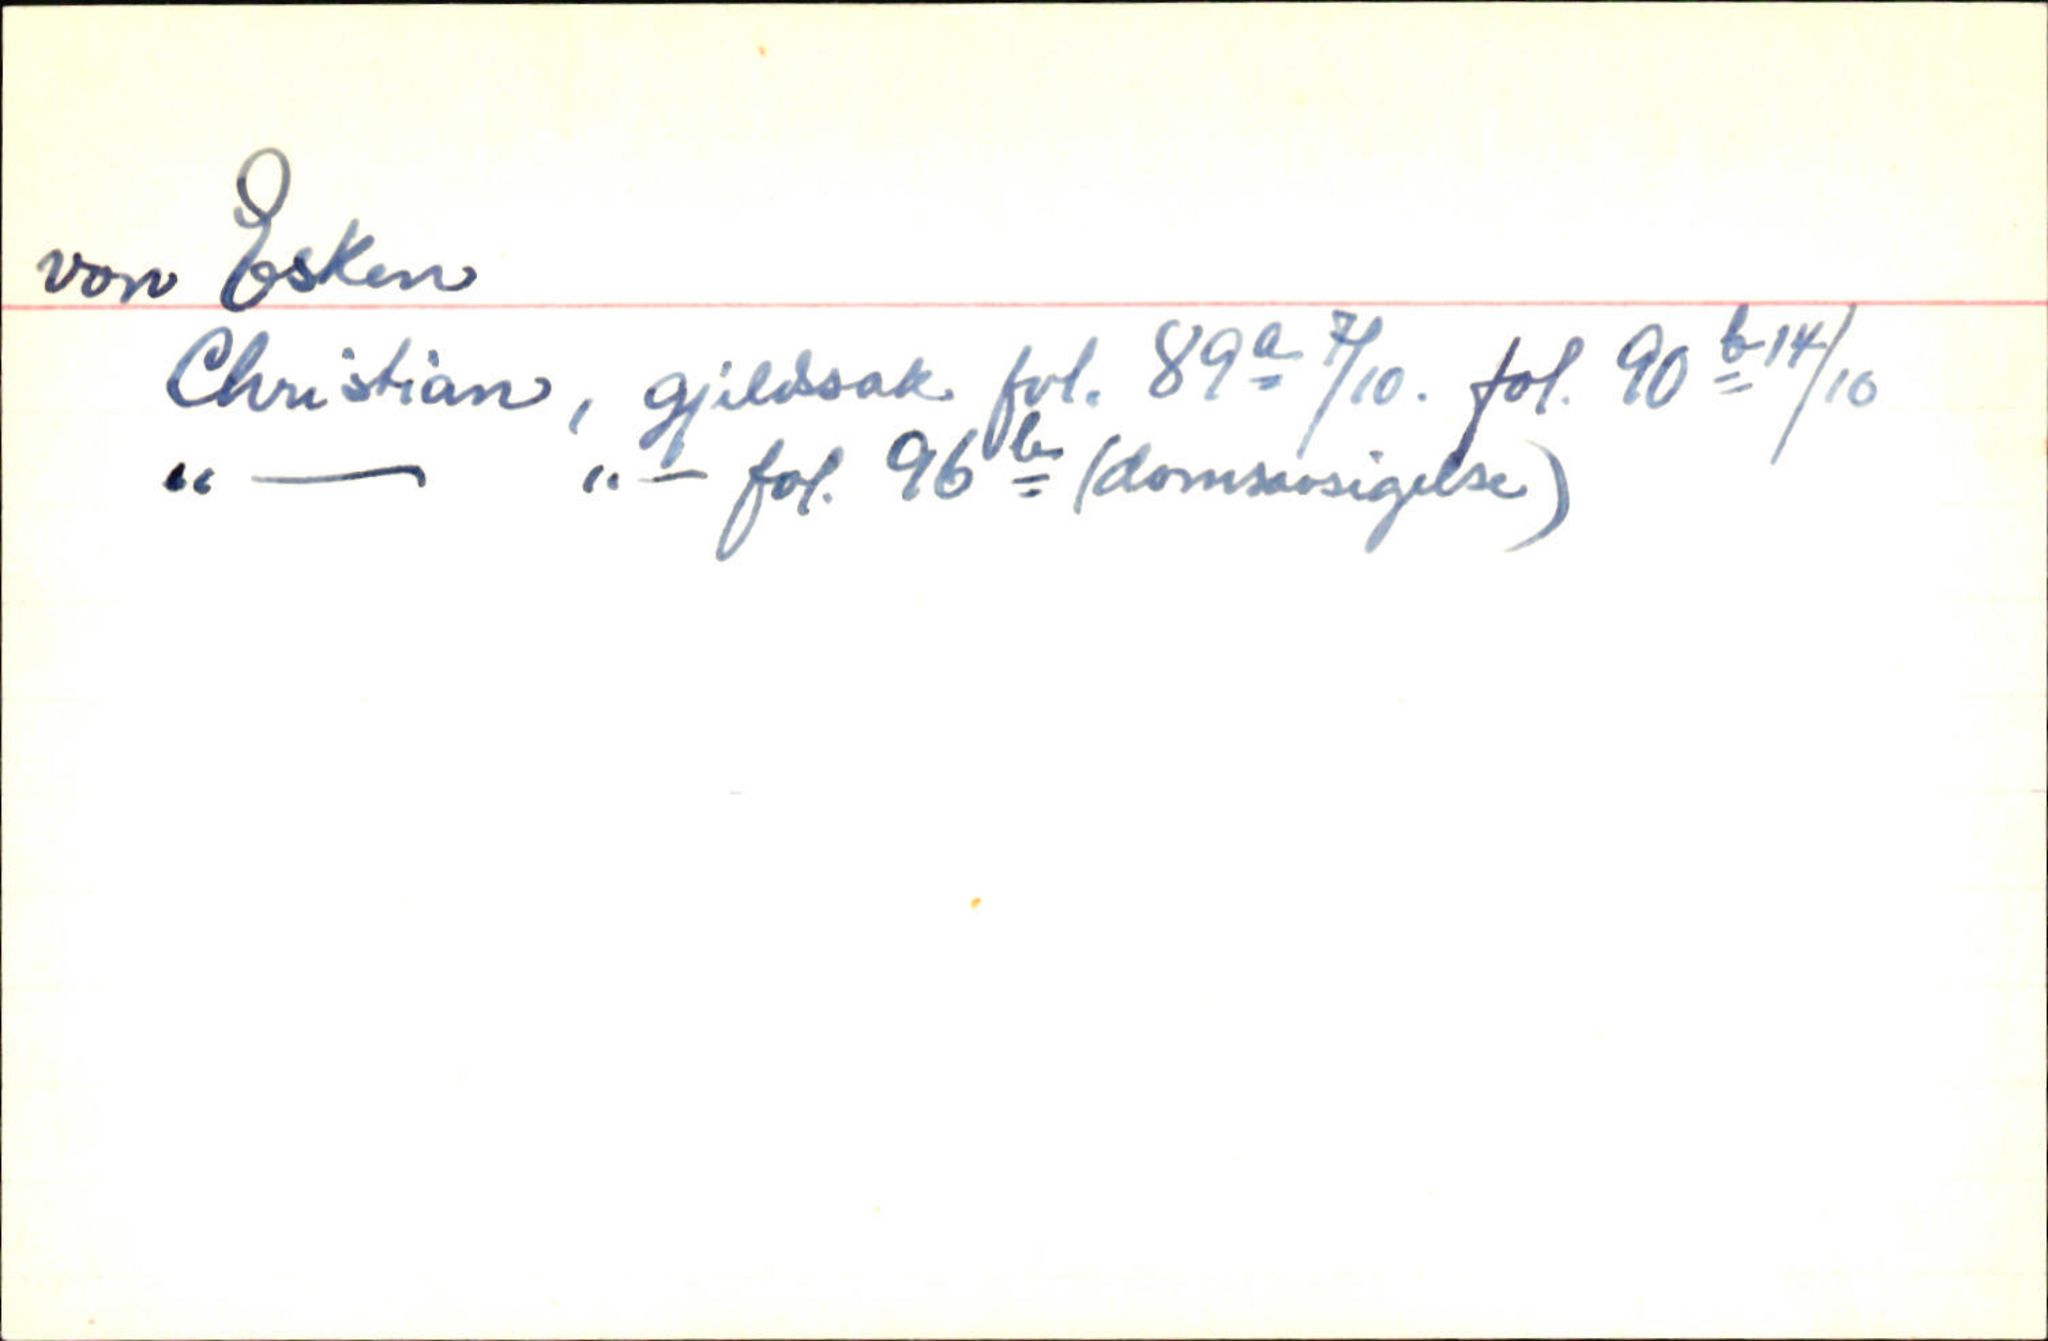 von Esken
Christian, gjeldssak fol. 89a 7/10. fol. 90b 14/10
"— "— fol. 96b (domsavsigelse)